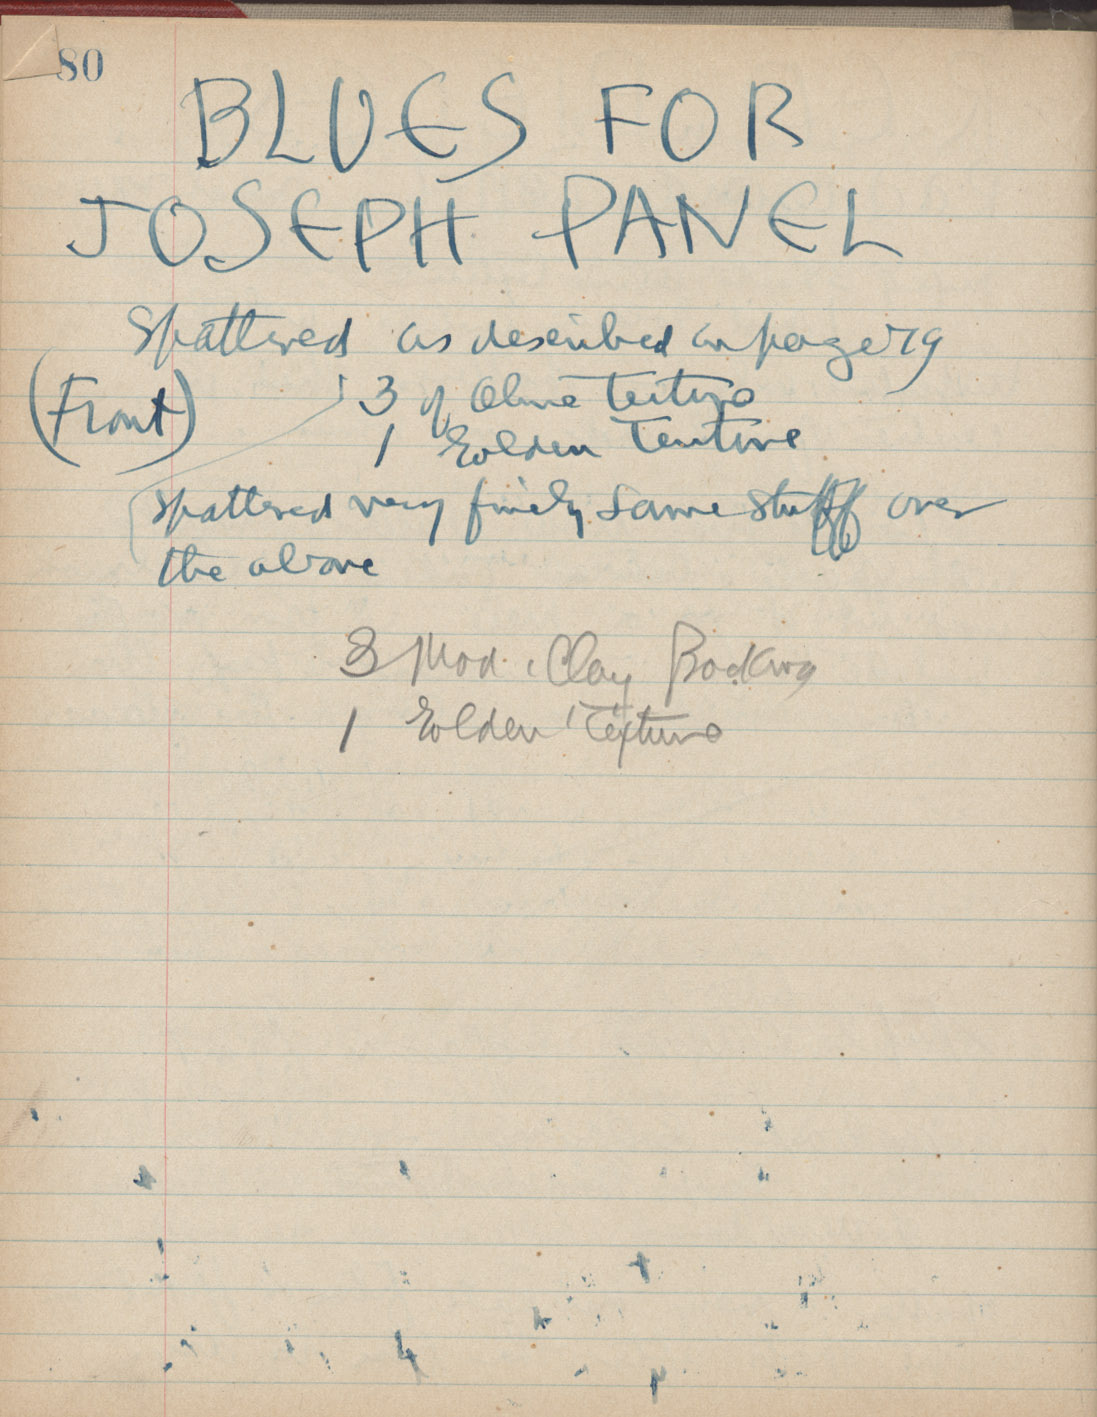 80
BLUES FOR
JOSEPH PANEL
Spattered as described on page 79
(Front)
3 of Olive Texture
1 Golden Texture
spattered very finely same stuff over
the above
3 Mod. Clay Backing
1 Golden Texture